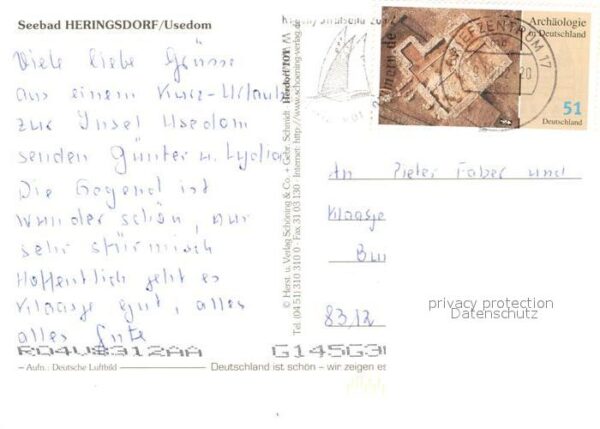 Seebad HERINGSDORF/Usedom
Viele liebe Grüsse
aus einem Kurz-Urlaub
zur Insel Usedom
senden Günter u. Lydia
Die Gegend ist
wunderschön, nur
sehr stürmisch
Hoffentlich geht es
Klaasje gut, alles
alles Gute
RD4V8312AA
– Aufn.: Deutsche Luftbild
© Herst. u. Verlag Schöning & Co. + Gebr. Schmidt
Tel. (04 51) 310 310 0 - Fax 31 03 130 - Internet: http://www.schoening-verlag.de
Archäologie
in Deutschland
51
Deutschland
BRIEFZENTRUM 17
An Pieter Faber und
Klaasje
83,12
privacy protection
Datenschutz
G145G3
Deutschland ist schön – wir zeigen es